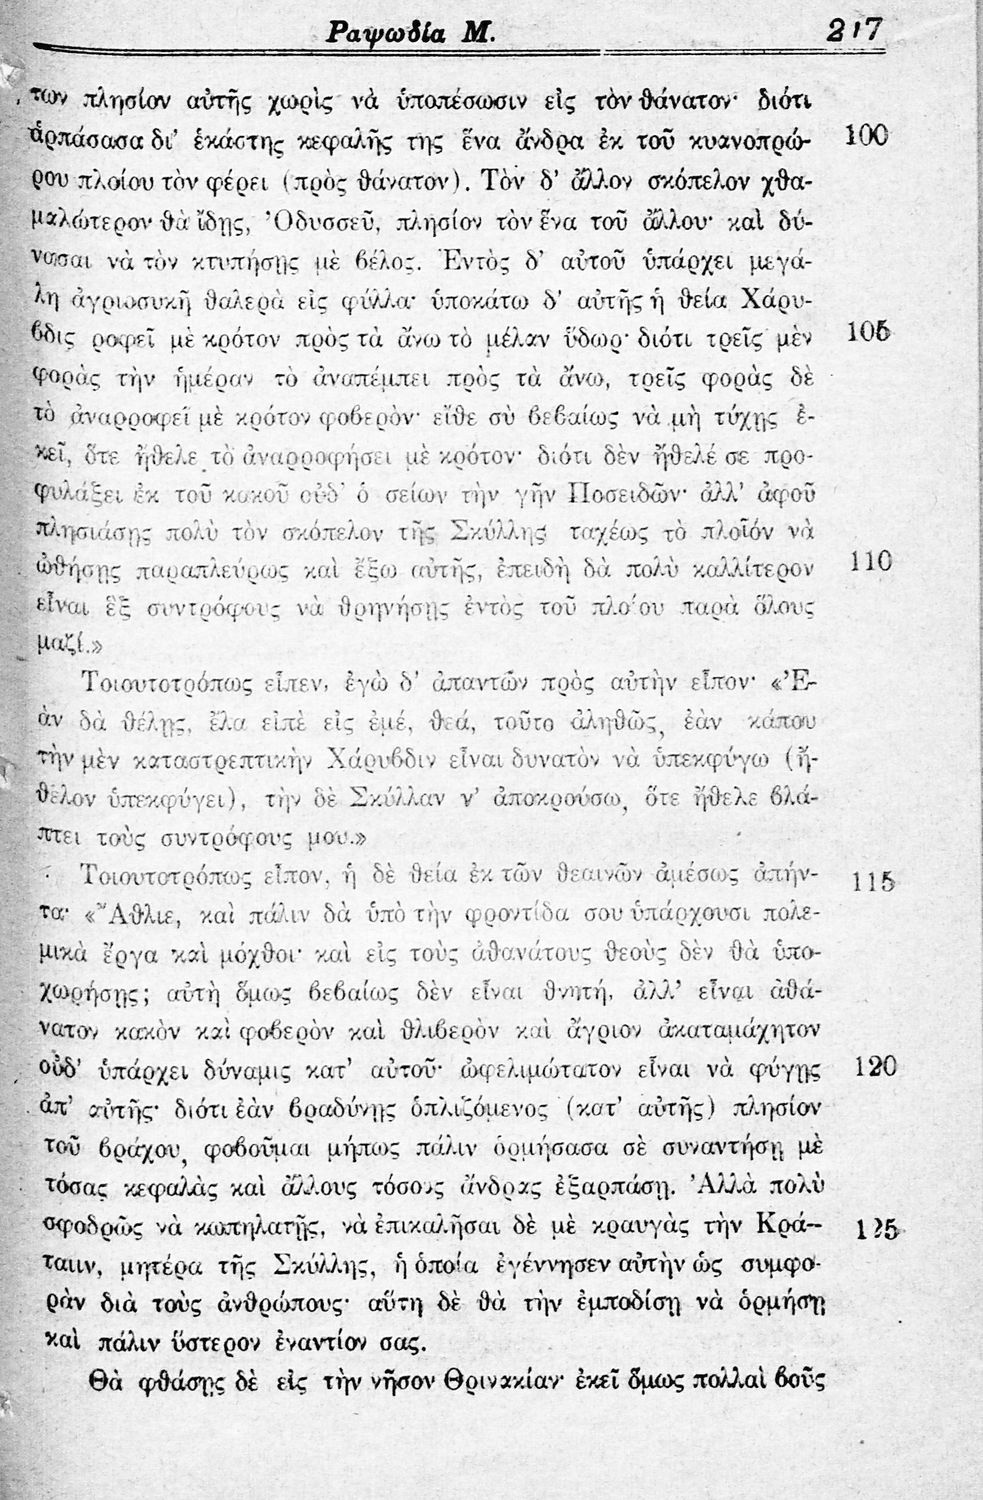 Ραψωδία Μ. 217
των πλησίον αὐτῆς χωρὶς νὰ ὑποπέσωσιν εἰς τὸν θάνατον· διότι
ἁρπάσασα δι' ἑκάστης κεφαλῆς της ἕνα ἄνδρα ἐκ τοῦ κυανοπρώ- 100
ρου πλοίου τὸν φέρει (πρὸς θάνατον). Τὸν δ' ἄλλον σκόπελον χθα-
μαλώτερον θὰ ἴδῃς, Ὀδυσσεῦ, πλησίον τὸν ἕνα τοῦ ἄλλου· καὶ δύ-
νασαι νὰ τὸν κτυπήσῃς μὲ βέλος. Ἐντὸς δ' αὐτοῦ ὑπάρχει μεγά-
λη ἀγριοσυκῆ θαλερὰ εἰς φύλλα· ὑποκάτω δ' αὐτῆς ἡ θεία Χάρυ-
βδις ροφεῖ μὲ κρότον πρὸς τὰ ἄνω τὸ μέλαν ὕδωρ· διότι τρεῖς μὲν 105
φορὰς τὴν ἡμέραν τὸ ἀναπέμπει πρὸς τὰ ἄνω, τρεῖς φορὰς δὲ
τὸ ἀναρροφεῖ μὲ κρότον φοβερὸν· εἴθε σὺ βεβαίως νὰ μὴ τύχῃς ἐ-
κεῖ, ὅτε ἤθελε τὸ ἀναρροφήσει μὲ κρότον· διότι δὲν ἤθελέ σε προ-
φυλάξει ἐκ τοῦ κακοῦ οὐδ' ὁ σείων τὴν γῆν Ποσειδῶν· ἀλλ' ἀφοῦ
πλησιάσῃς πολὺ τὸν σκόπελον τῆς Σκύλλης ταχέως τὸ πλοῖόν νὰ
ὠθήσῃς παραπλεύρως καὶ ἔξω αὐτῆς, ἐπειδὴ δὰ πολὺ καλλίτερον 110
εἶναι ἓξ συντρόφους νὰ θρηνήσῃς ἐντὸς τοῦ πλοίου παρὰ ὅλους
μαζί.»
Τοιουτοτρόπως εἶπεν, ἐγὼ δ' ἀπαντῶν πρὸς αὐτὴν εἶπον· «Ἐ-
ὰν δὰ θέλῃς, ἔλα εἰπὲ εἰς ἐμέ, θεά, τοῦτο ἀληθῶς, ἐὰν κάπου
τὴν μὲν καταστρεπτικὴν Χάρυβδιν εἶναι δυνατὸν νὰ ὑπεκφύγω (ἤ-
θελον ὑπεκφύγει), τὴν δὲ Σκύλλαν ν' ἀποκρούσω, ὅτε ἤθελε βλά-
πτει τοὺς συντρόφους μου.»
Τοιουτοτρόπως εἶπον, ἡ δὲ θεία ἐκ τῶν θεαινῶν ἀμέσως ἀπήν- 115
τα· «Ἄθλιε, καὶ πάλιν δὰ ὑπὸ τὴν φροντίδα σου ὑπάρχουσι πολε-
μικὰ ἔργα καὶ μόχθοι· καὶ εἰς τοὺς ἀθανάτους θεοὺς δὲν θὰ ὑπο-
χωρήσῃς; αὐτὴ ὅμως βεβαίως δὲν εἶναι θνητή, ἀλλ' εἶναι ἀθά-
νατον κακὸν καὶ φοβερὸν καὶ θλιβερὸν καὶ ἄγριον ἀκαταμάχητον
οὐδ' ὑπάρχει δύναμις κατ' αὐτοῦ· ὠφελιμώτατον εἶναι νὰ φύγῃς 120
ἀπ' αὐτῆς· διότι ἐὰν βραδύνῃς ὁπλιζόμενος (κατ' αὐτῆς) πλησίον
τοῦ βράχου, φοβοῦμαι μήπως πάλιν ὁρμήσασα σὲ συναντήσῃ μὲ
τόσας κεφαλὰς καὶ ἄλλους τόσους ἄνδρας ἐξαρπάσῃ. Ἀλλὰ πολὺ
σφοδρῶς νὰ κωπηλατῇς, νὰ ἐπικαλῆσαι δὲ μὲ κραυγὰς τὴν Κρά- 125
ταιιν, μητέρα τῆς Σκύλλης, ἡ ὁποία ἐγέννησεν αὐτὴν ὡς συμφο-
ρὰν διὰ τοὺς ἀνθρώπους· αὕτη δὲ θὰ τὴν ἐμποδίσῃ νὰ ὁρμήσῃ
καὶ πάλιν ὕστερον ἐναντίον σας.
Θὰ φθάσῃς δὲ εἰς τὴν νῆσον Θρινακίαν· ἐκεῖ ὅμως πολλαὶ βοῦς